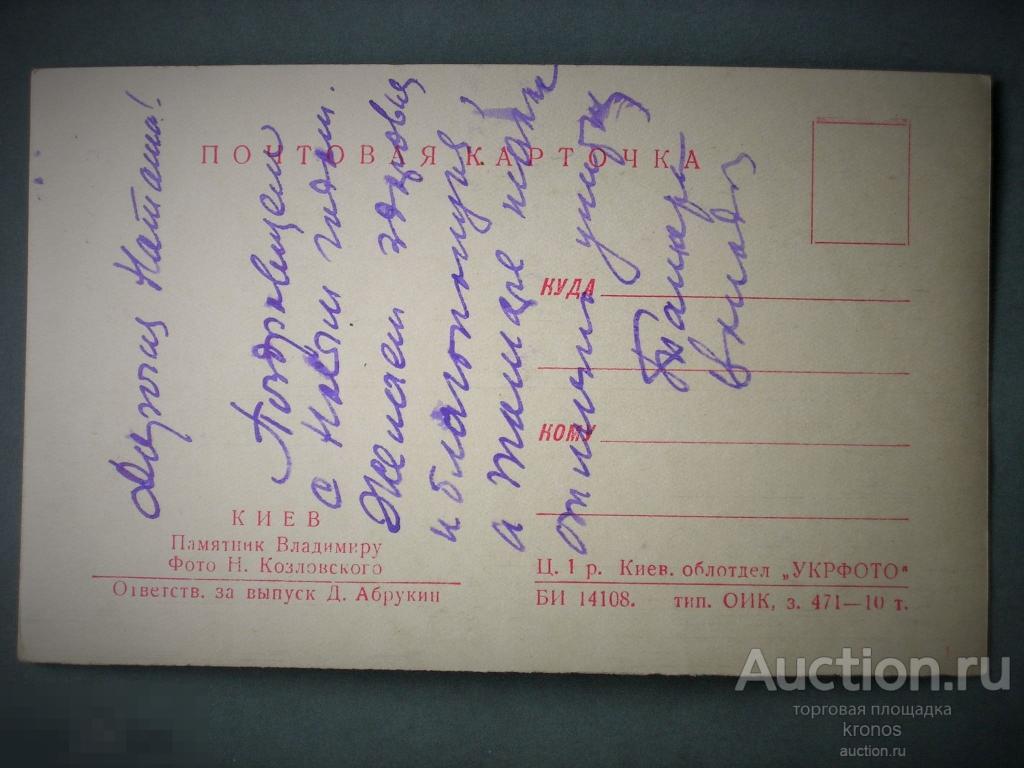 ПОЧТОВАЯ КАРТОЧКА
Дорогая Наташа!
Поздравляем
с Новым годом.
Желаем здоровья
и благополучия
а также
КУДА
КОМУ
КИЕВ
Памятник Владимиру
Фото Н. Козловского
Ответств. за выпуск Д. Абрукин
Ц. 1 р. Киев. облотдел „УКРФОТО"
БИ 14108. тип. ОИК, з. 471—10 т.
Auction.ru
торговая площадка
kronos
auction.ru